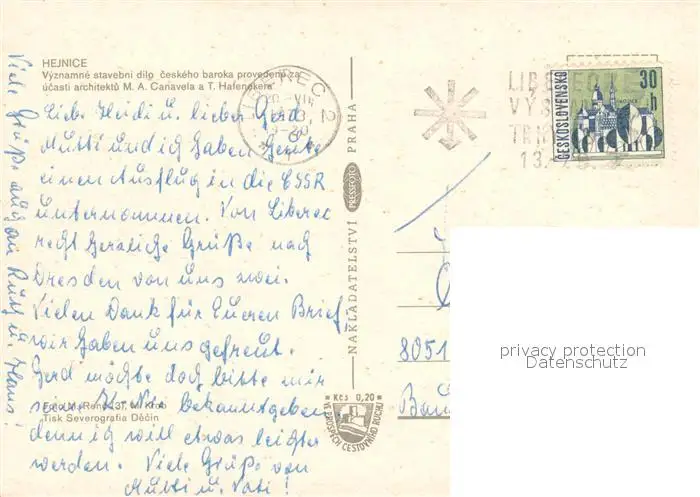 HEJNICE
Významné stavební dílo českého baroka provedeno za
účasti architektů M. A. Canavela a T. Hafenekera
Liebe Heidi u. lieber Gerd
Mutti und ich haben heute
einen Ausflug in die ČSSR
unternommen. Von Liberec
recht herzliche Grüße nach
Dresden von uns zwei.
Vielen Dank für Eueren Brief
wir haben uns gefreut.
Gerd möchte doch bitte mir
seine Nr. bekanntgeben
denn ich will etwas leichter
werden. Viele Grüße von
Mutti u. Vati!
Viele Grüße auch an Ruth u. Hans!
Tisk Severografia Děčín
NAKLADATELSTVÍ PRESSFOTO PRAHA
Kčs 0,20
VE PROSPĚCH CESTOVNÍHO RUCHU
LIBEREC 2
LIBEREC
13.
ČESKOSLOVENSKO
30 h
8051
privacy protection
Datenschutz